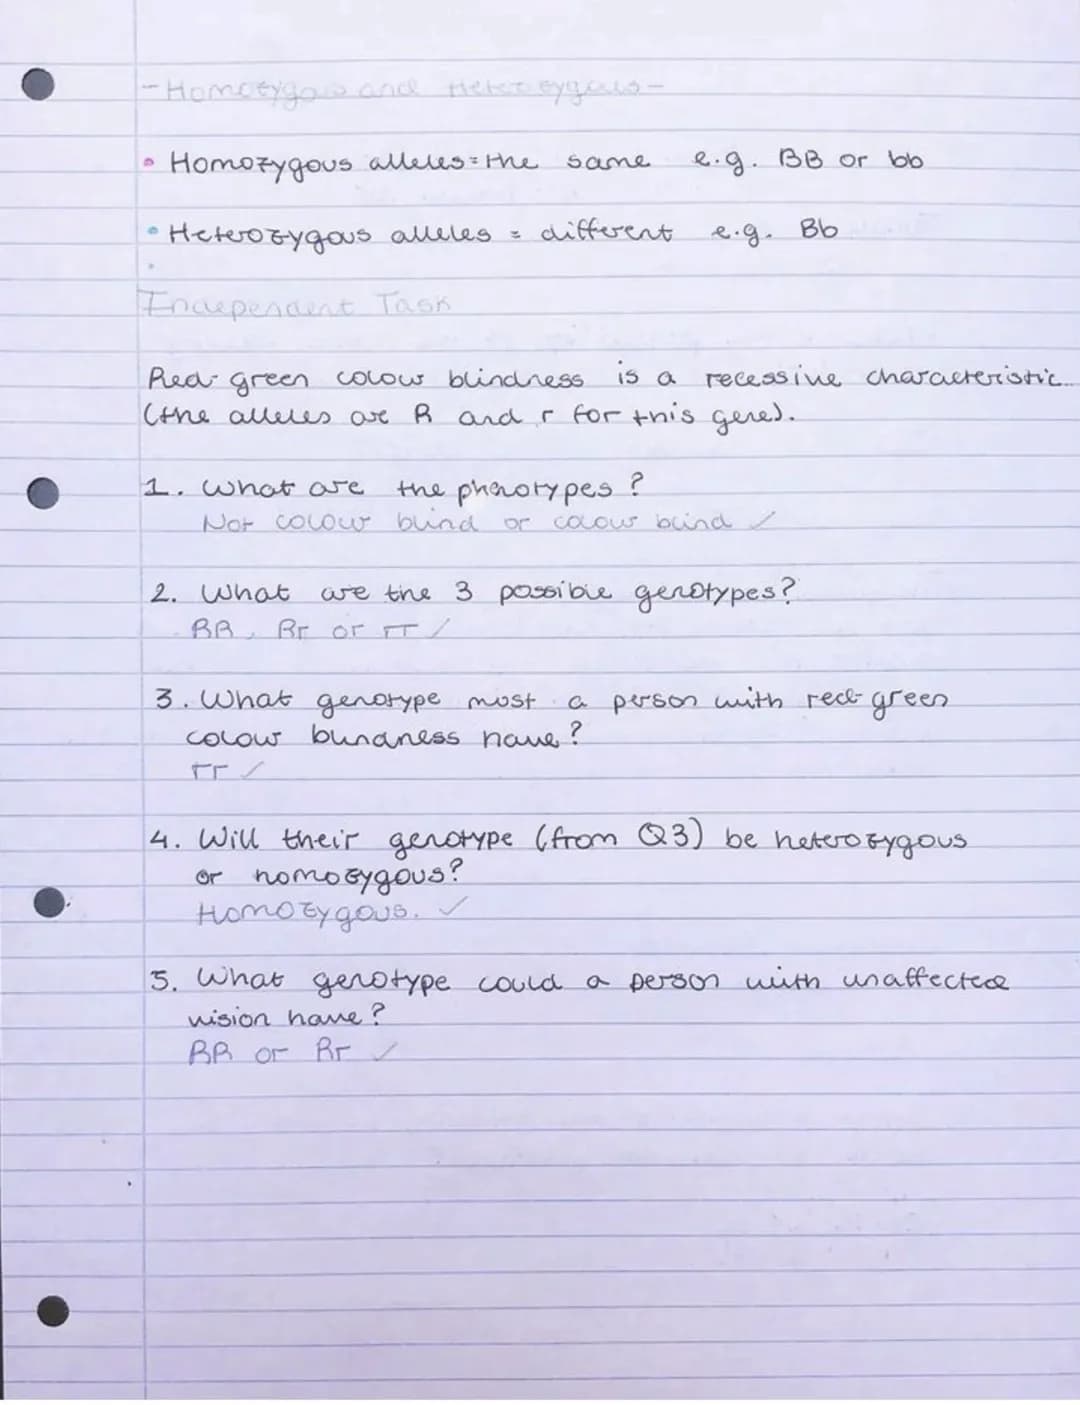 -Homozygous and Heterozygous-
• Homozygous alleles = the same e.g. BB or bb
• Heterozygous alleles = different e.g. Bb
Independent Task
Red-green colour blindness is a recessive characteristic.
(the alleles are R and r for this gene).
1. What are the phenotypes?
Not colour blind or colour blind ✓
2. What are the 3 possible genotypes?
RR, Rr or rr ✓
3. What genotype must a person with red-green
colour blindness have?
rr ✓
4. Will their genotype (from Q3) be heterozygous
or homozygous?
Homozygous. ✓
5. What genotype could a person with unaffected
vision have?
RR or Rr ✓